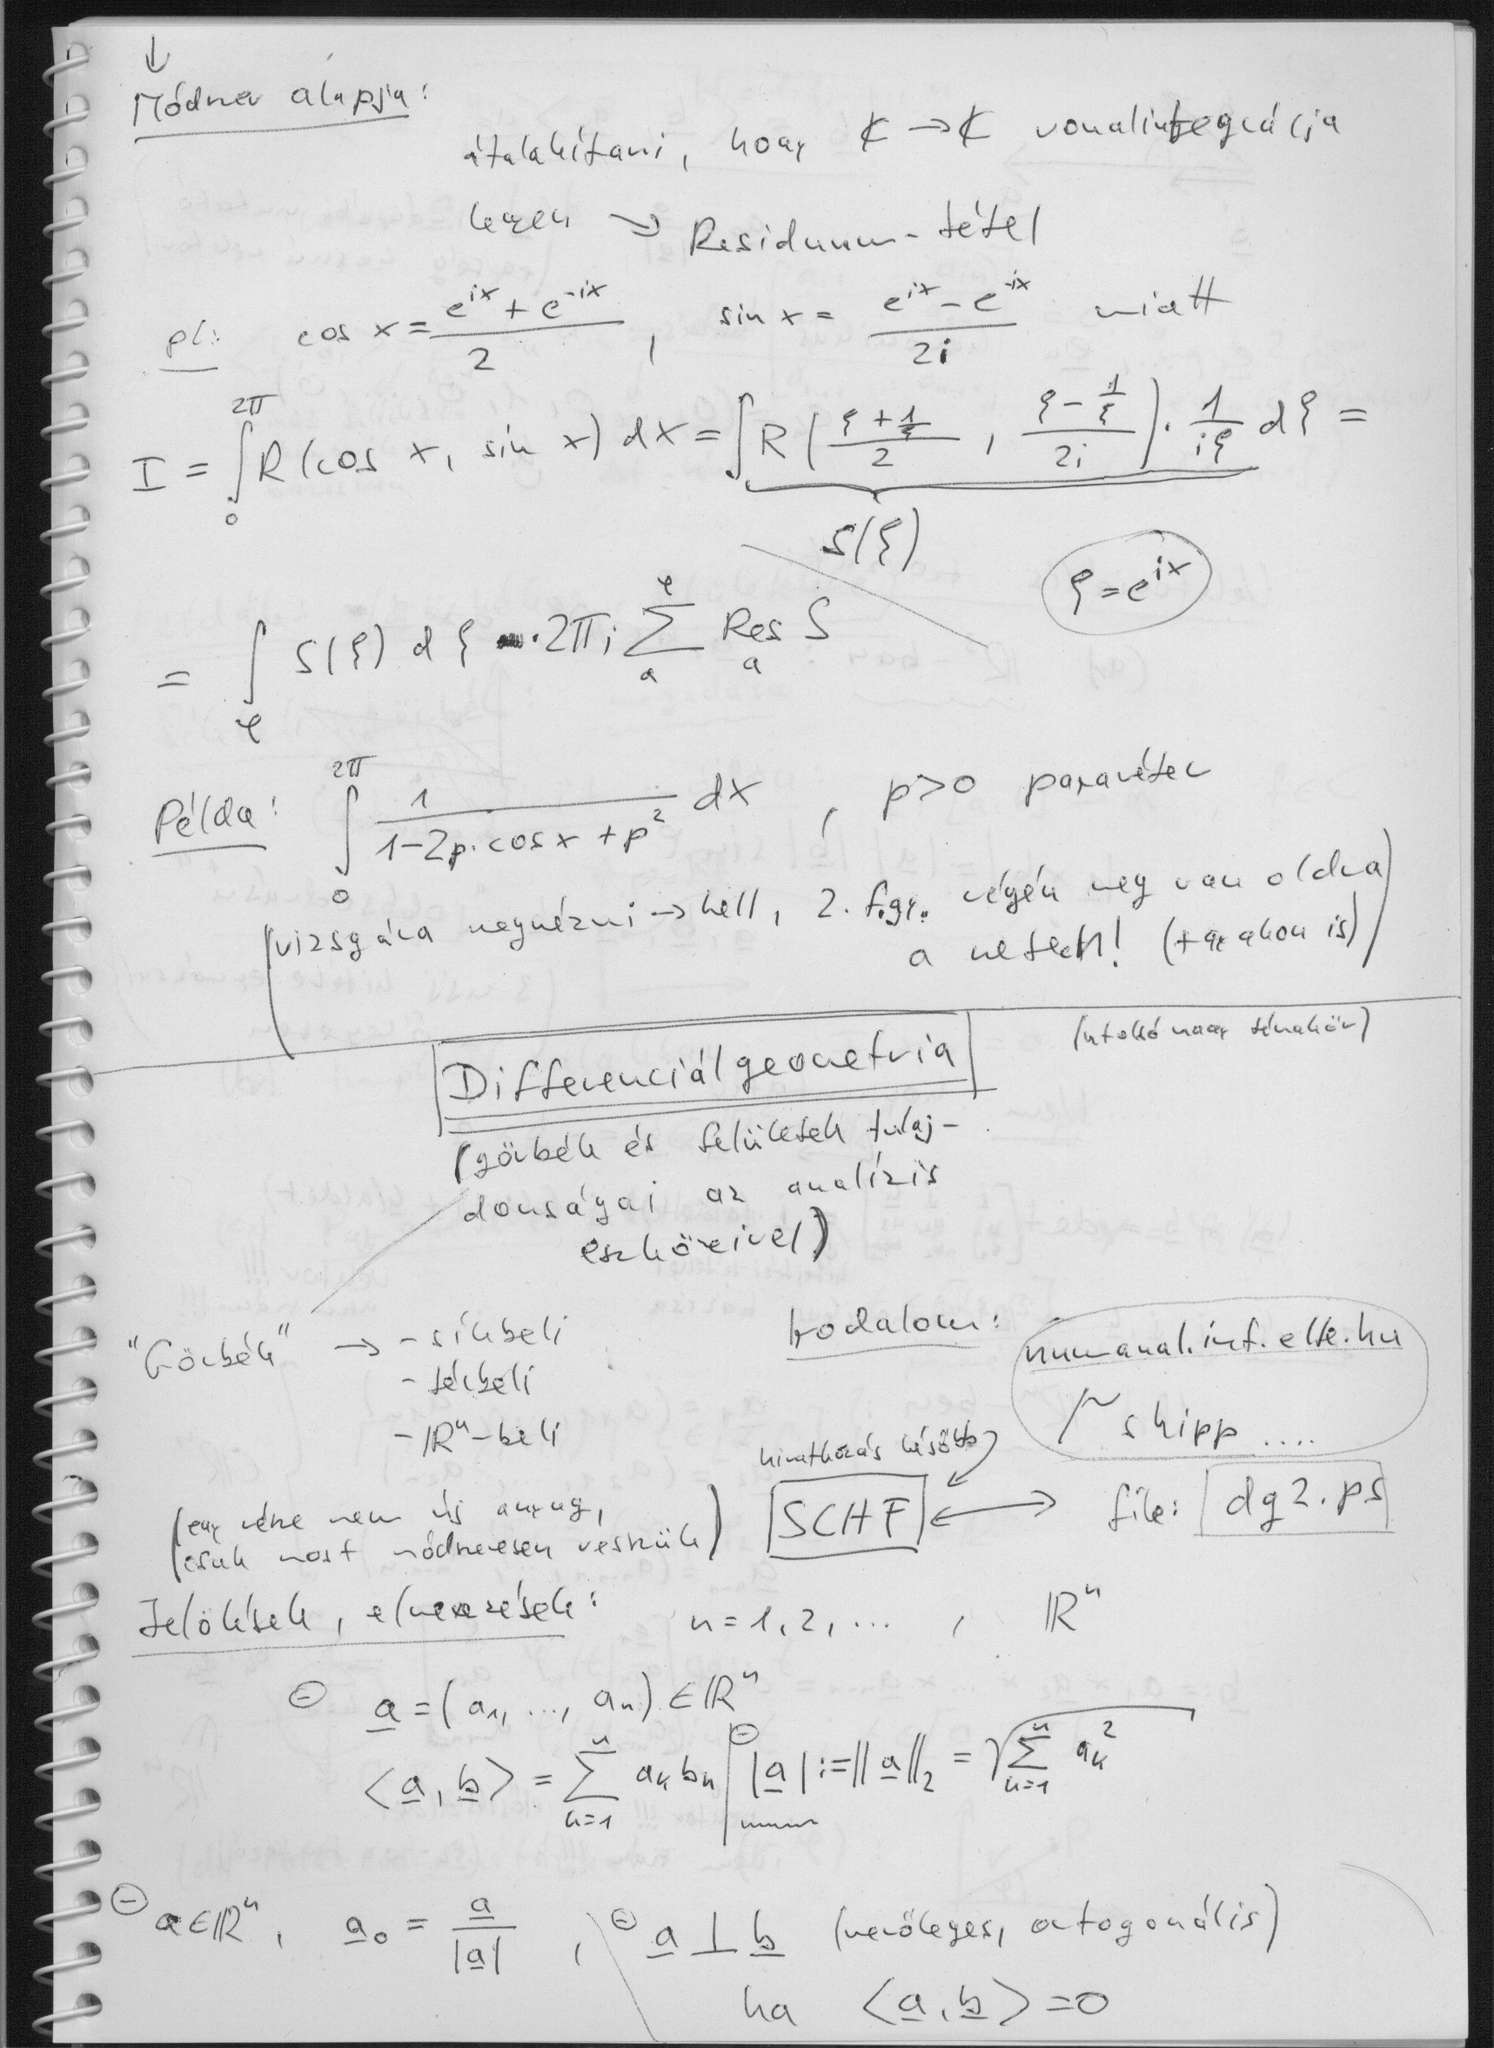 ↓
Módszer alapja:
átalakítani, hogy ℂ → ℂ vonalintegrálja
legyen → Residuum-tétel
pl: cos x = (e^{ix} + e^{-ix})/2 , sin x = (e^{ix} - e^{-ix})/2i miatt
I = ∫_0^{2π} R(cos x, sin x) dx = ∫ R((ξ + 1/ξ)/2 , (ξ - 1/ξ)/2i) · 1/(iξ) dξ =
S(ξ)
ξ = e^{ix}
= ∫_φ S(ξ) dξ · 2πi ∑_a^φ Res_a S
Példa: ∫_0^{2π} 1/(1-2p·cos x + p²) dx , p>0 paraméter
(vizsgára megnézni → kell, 2. f.gy. végén meg van oldva
a neten! (+ azokon is))
(utolsó nagy témakör)
Differenciálgeometria
(görbék és felületek tulaj-
donságai az analízis
eszközeivel)
"Görbék" → - síkbeli
- térbeli
- ℝⁿ-beli
Irodalom:
numanal.inf.elte.hu
/~schipp ....
hivatkozás később
SCHF ↔ file: dg2.ps
(egy része nem is anyag,
csak most módszeresen vesszük)
Jelölések, elnevezések: n = 1, 2, ... , ℝⁿ
⊖ a = (a₁, ..., aₙ) ∈ ℝⁿ
⟨a, b⟩ = ∑_{k=1}^n a_k b_k | ⊖ |a| := ||a||₂ = √(∑_{k=1}^n a_k²)
⊖ a ∈ ℝⁿ, a₀ = a/|a| , ⊖ a ⊥ b (merőleges, ortogonális)
ha ⟨a, b⟩ = 0